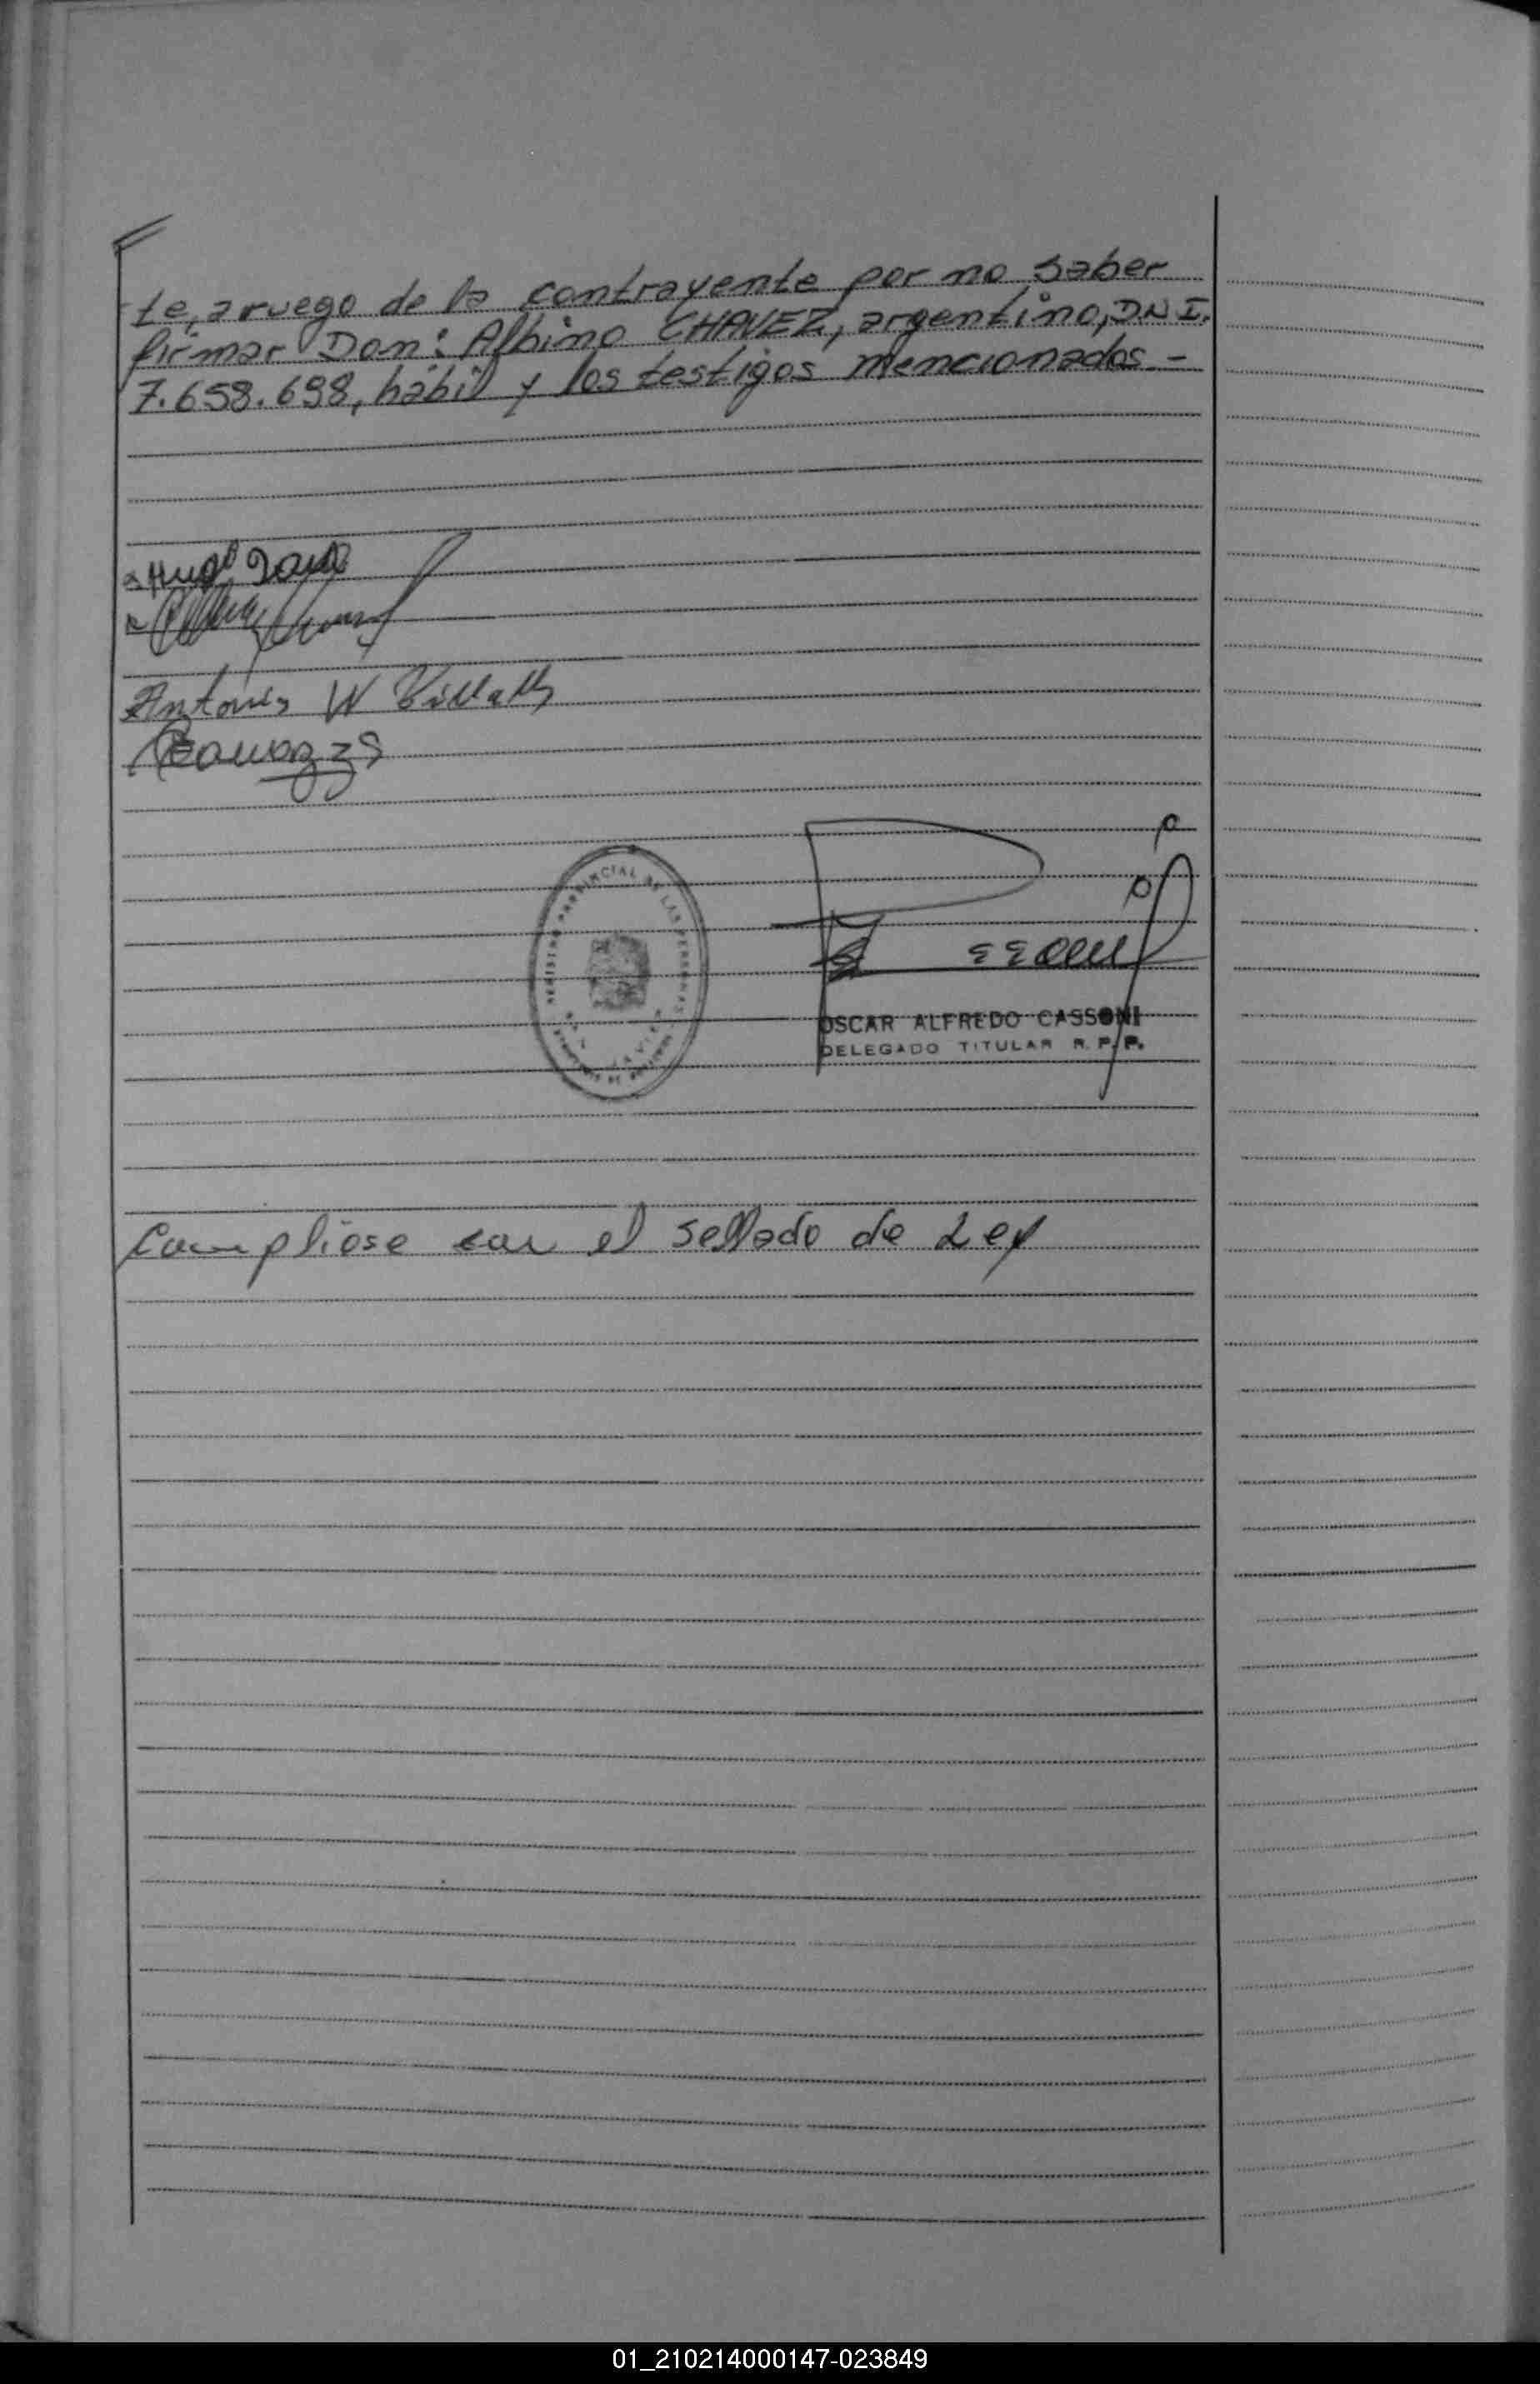 te, a ruego de la contrayente por no saber
firmar Don: Albino CHAVEZ, argentino, D.N.I.
7.658.698, hábil y los testigos mencionados.-
Hugo
Antonio W
REGISTRO PROVINCIAL DE LAS PERSONAS
OSCAR ALFREDO CASSONI
DELEGADO TITULAR R. P. P.
Campliose con el sellado de Ley
01_210214000147-023849